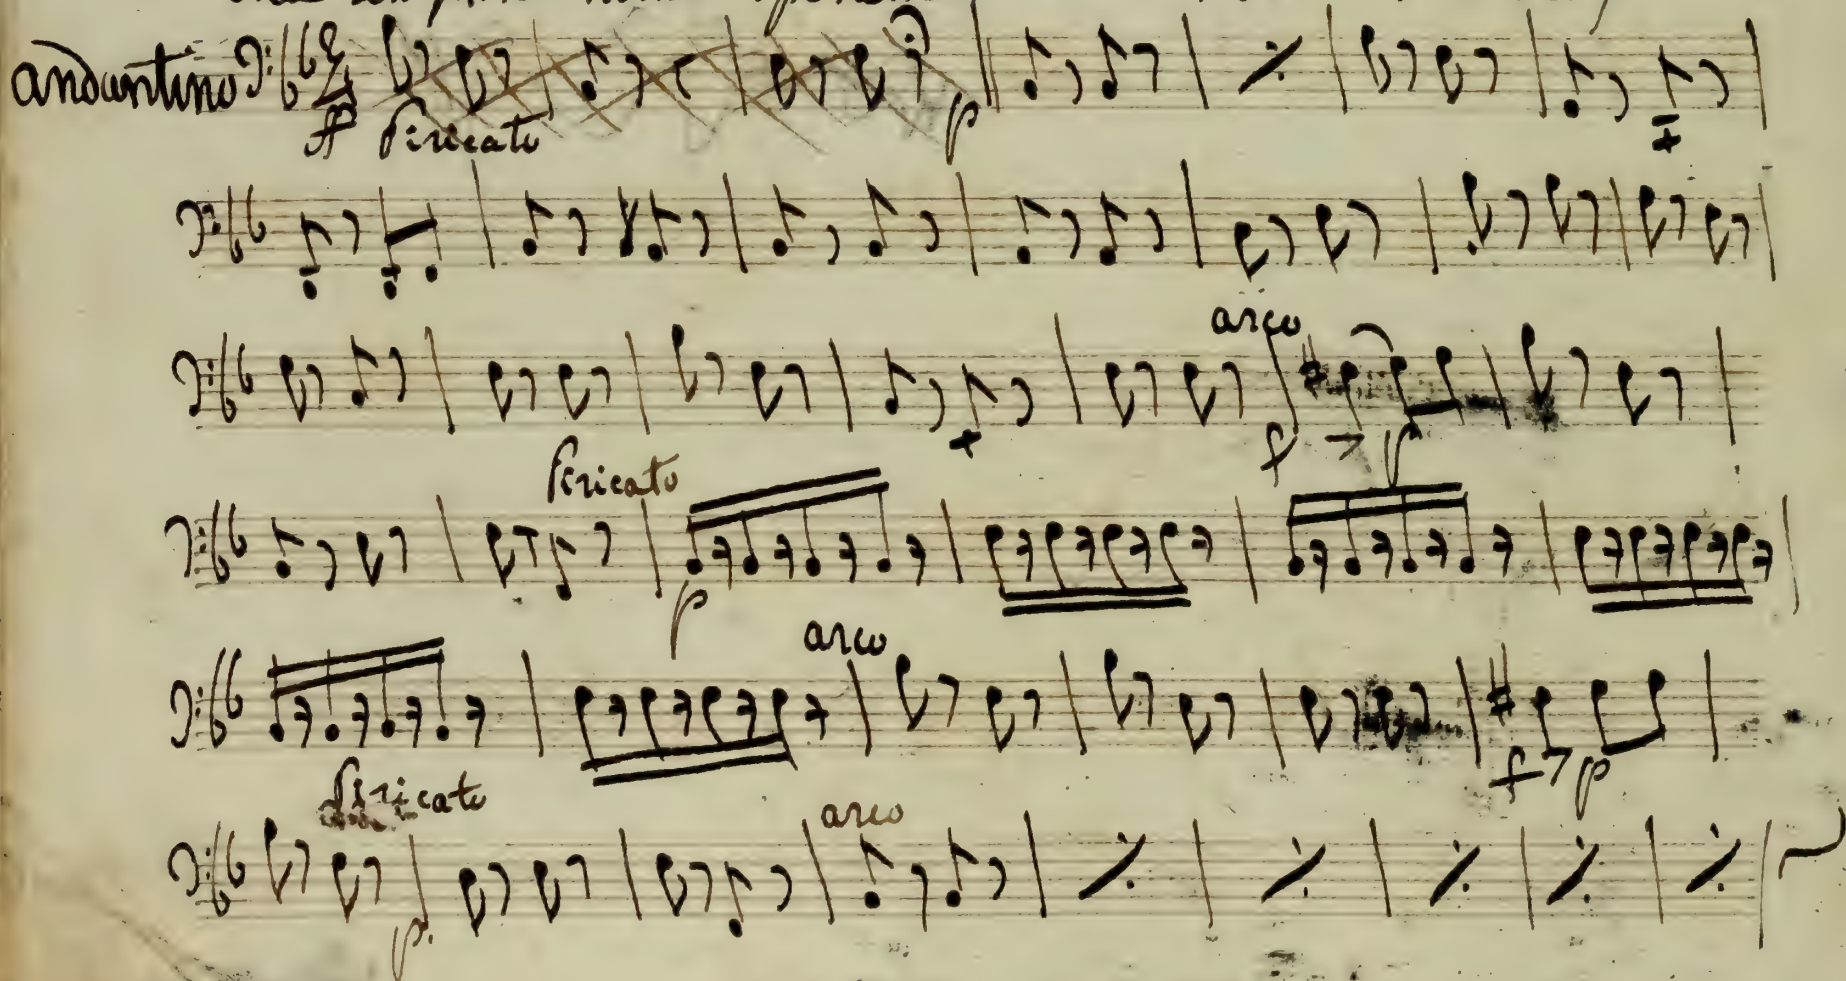 andantino 2/4
ff Piricato p
arco
f p
Piricato
p
arco
f p
Piricato arco
p.